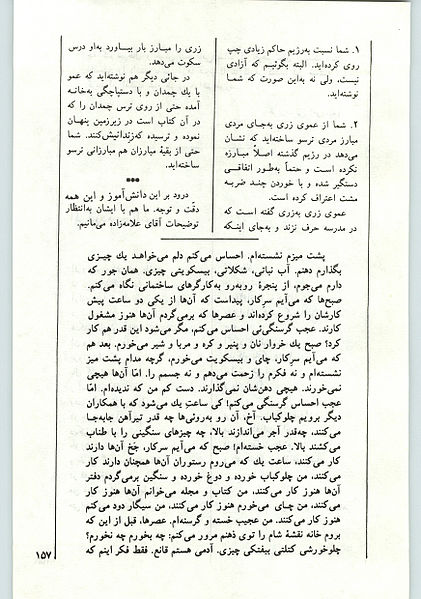 ۱. شما نسبت به‌رژیم حاکم زیادی چپ
روی کرده‌اید. البته بگوئیم که آزادی
نیست، ولی نه به‌این صورت که شما
نوشته‌اید.
۲. شما از عموی زری به‌جای مردی
مبارز مردی ترسو ساخته‌اید که نشان
می‌دهد در رژیم گذشته اصلاً مبارزه
نکرده است و حتماً به‌طور اتفاقی
دستگیر شده و با خوردن چند ضربه
مشت اعتراف کرده است.
عموی زری به‌زری گفته است که
در مدرسه حرف نزند و به‌جای اینکه
زری را مبارز بار بیاورد به‌او درس
سکوت می‌دهد.
در جائی دیگر هم نوشته‌اید که عمو
با یك چمدان و با دستپاچگی به‌خانه
آمده حتی از روی ترس چمدان را که
در آن کتاب است در زیرزمین پنهان
نموده و ترسیده که‌زندانیش‌کنند. شما
حتی از بقیهٔ مبارزان هم مبارزانی ترسو
ساخته‌اید.
•••
درود بر این دانش‌آموز و این همه
دقّت و توجه. ما هم با ایشان به‌انتظار
توضیحات آقای علامه‌زاده می‌مانیم.
پشت میزم نشسته‌ام. احساس می‌کنم دلم می‌خواهد یك چیزی
بگذارم دهنم. آب نباتی، شکلاتی، بیسکویتی چیزی. همان جور که
دارم می‌جوم، از پنجرهٔ روبه‌رو به‌کارگرهای ساختمانی نگاه می‌کنم.
صبح‌ها که می‌آیم سرِکار، پیداست که آن‌ها از یکی دو ساعت پیش
کارشان را شروع کرده‌اند و عصرها که برمی‌گردم آن‌ها هنوز مشغول
کارند. عجب گرسنگی‌ئی احساس می‌کنم، مگر می‌شود این قدر هم کار
کرد؟ صبح یك خروار نان و پنیر و کره و مربا و شیر می‌خورم. بعد هم
که می‌آیم سرِکار، چای و بیسکویت می‌خورم، گرچه مدام پشت میز
نشسته‌ام و نه فکرم را زحمت می‌دهم و نه جسمم را. امّا آن‌ها هیچی
نمی‌خورند. هیچی دهن‌شان نمی‌گذارند. دست کم من که ندیده‌ام. امّا
عجب احساس گرسنگی می‌کنم! کی ساعتِ یك می‌شود که با همکاران
دیگر برویم چلوکباب. آخ، آن رو به‌روئی‌ها چه قدر تیرآهن جابه‌جا
می‌کنند، چه‌قدر آجر می‌اندازند بالا، چه چیزهای سنگینی را با طناب
می‌کشند بالا. عجب خسته‌ام! صبح که می‌آیم سرکار، جَخ آن‌ها دارند
کار می‌کنند، ساعت یك که می‌روم رستوران آن‌ها همچنان دارند کار
می‌کنند، من چلوکباب خورده و دوغ خورده و سنگین برمی‌گردم دفتر
آن‌ها هنوز کار می‌کنند، من کتاب و مجله می‌خوانم آن‌ها هنوز کار
می‌کنند، من چای می‌خورم هنوز کار می‌کنند، من سیگار دود می‌کنم
هنوز کار می‌کنند. من عجیب خسته و گرسنه‌ام. عصرها، قبل از این که
بروم خانه نقشهٔ شام را توی ذهنم مرور می‌کنم: چه بخورم چه نخورم؟
چلوخورشی کتلتی بیفتکی چیزی. آدمی هستم قانع. فقط فکر اینم که
۱۵۷